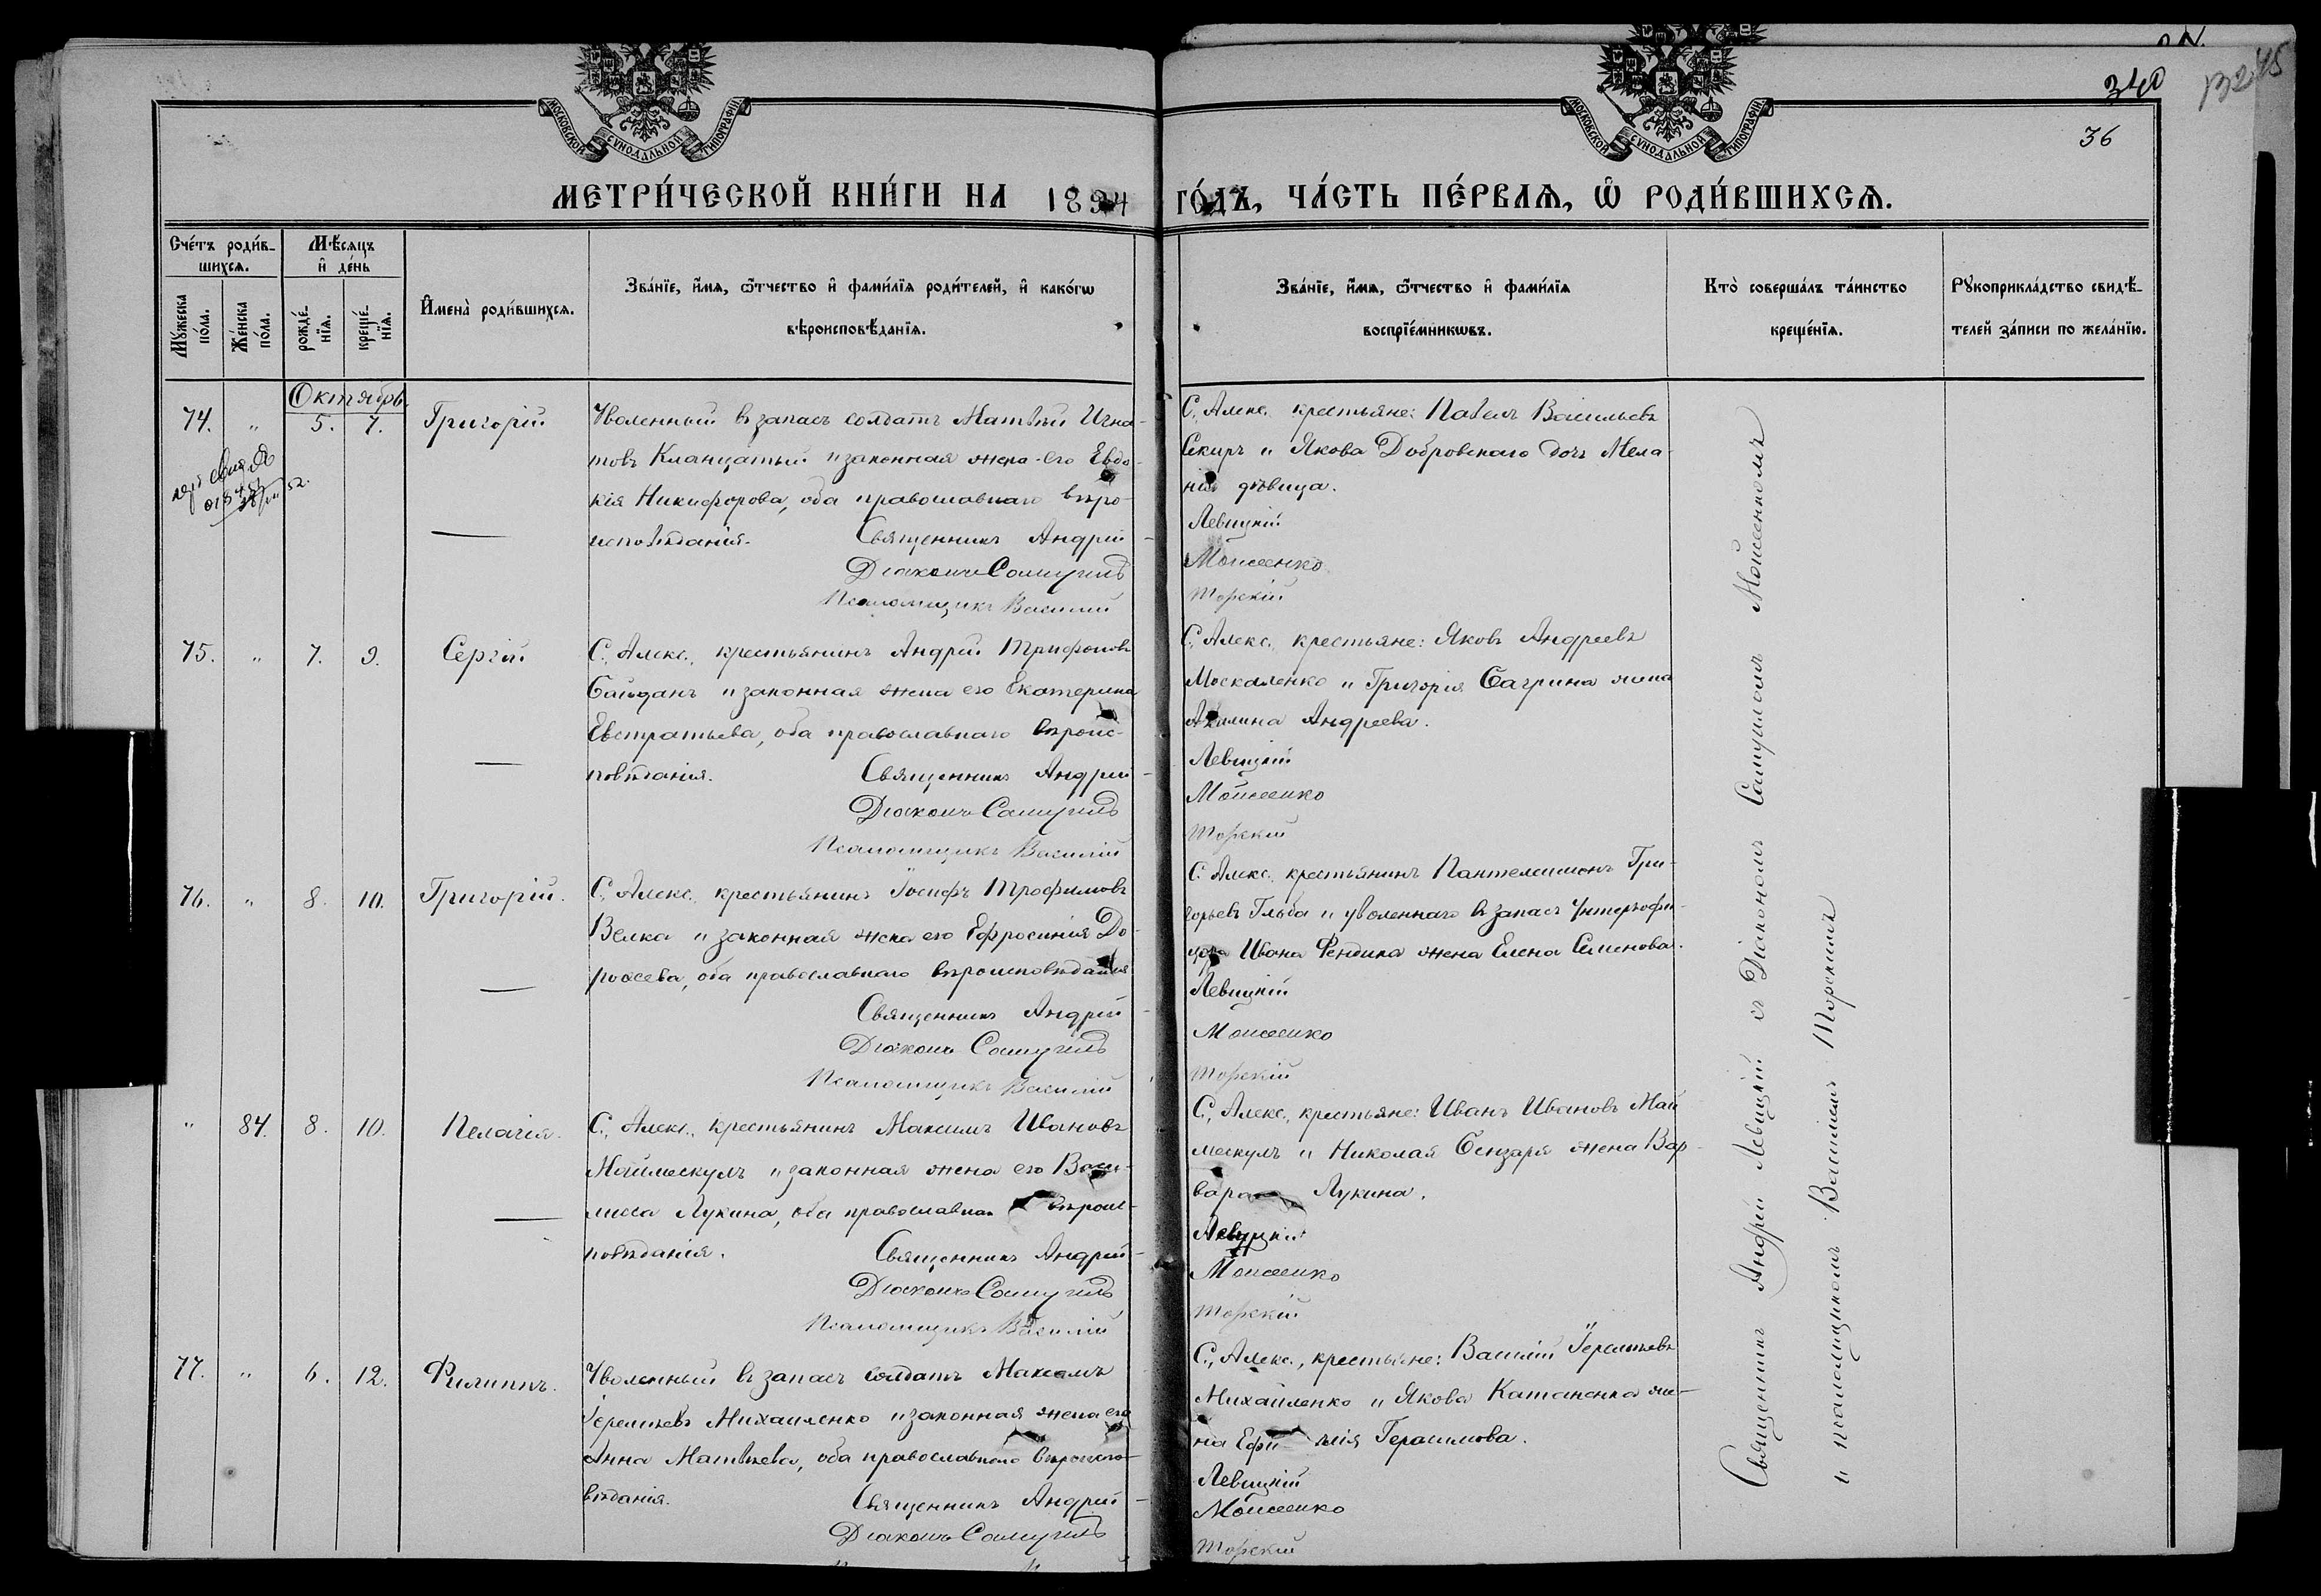 МОСКОВСКОЙ СѴНОДАЛЬНОЙ ТИПОГРАФІИ
МОСКОВСКОЙ СѴНОДАЛЬНОЙ ТИПОГРАФІИ
340
36
МЕТРИ́ЧЕСКОЙ КНИ́ГИ НА 1894 ГО́ДЪ, ЧА́СТЬ ПЕ́РВАѦ, Ѡ҆ РОДИ́ВШИХСѦ.
Сче́тъ роди́в-
шихсѧ.
Мꙋ́жеска по́ла.
Же́нска по́ла.
Мѣ́сѧцъ
и҆ де́нь
рожде́нїѧ.
креще́нїѧ.
И҆мена̀ роди́вшихсѧ.
Зва́нїе, и҆́мѧ, ѻ҆́тчество и҆ фами́лїѧ роди́телей, и҆ како́гѡ
вѣроисповѣ́данїѧ.
Зва́нїе, и҆́мѧ, ѻ҆́тчество и҆ фами́лїѧ
воспрїе́мникѡвъ.
Кто̀ соверша́лъ та́инство
креще́нїѧ.
Рꙋкоприкла́дство свидѣ́-
телей за́писи по жела́нїю.
Октябрь.
74. " 5. 7. Григорій
Уволенный въ запасъ солдатъ Матвѣй Игна-
товъ Кланцатый и законная жена его Евдо-
кія Никифорова, оба православнаго вѣро-
исповѣданія. Священникъ Андрей
Діаконъ Самуилъ
Псаломщикъ Василій
С. Алекс. крестьяне: Павелъ Васильевъ
Секиръ и Якова Добровскаго дочь Мела-
нія дѣвица.
Левицкій
Моисеенко
Торскій
75. " 7. 9. Сергій
С. Алекс. крестьянинъ Андрей Трифоновъ
Байданъ и законная жена его Екатерина
Евстратьева, оба православнаго вѣроис-
повѣданія. Священникъ Андрей
Діаконъ Самуилъ
Псаломщикъ Василій
С. Алекс. крестьяне: Яковъ Андреевъ
Москаленко и Григорія Багрина жена
Акилина Андреева.
Левицкій
Моисеенко
Торскій
76. " 8. 10. Григорій.
С. Алекс. крестьянинъ Іосифъ Трофимовъ
Велка и законная жена его Ефросинія До-
рофеева, оба православнаго вѣроисповѣданія
Священникъ Андрей
Діаконъ Самуилъ
Псаломщикъ Василій
С. Алекс. крестьянинъ Пантелеимонъ Гри-
горьевъ Глыба и уволеннаго въ запасъ Унтеръ-офи-
цера Ивана Фендика жена Елена Семенова.
Левицкій
Моисеенко
Торскій
" 84. 8. 10. Пелагія.
С. Алекс. крестьянинъ Максимъ Ивановъ
Маймескулъ и законная жена его Васи-
лисса Лукина, оба православнаго вѣроис-
повѣданія. Священникъ Андрей
Діаконъ Самуилъ
Псаломщикъ Василій
С. Алекс. крестьяне: Иванъ Ивановъ Май-
мескулъ и Николая Бензаря жена Вар-
вара Лукина.
Левицкій
Моисеенко
Торскій
77. " 6. 12. Филиппъ.
Уволенный въ запасъ солдатъ Максимъ
Іереміевъ Михайленко и законная жена его
Анна Матвѣева, оба православнаго вѣроиспо-
вѣданія. Священникъ Андрей
Діаконъ Самуилъ
С. Алекс. крестьяне: Василій Іереміевъ
Михайленко и Якова Катаненка же-
на Ефимія Герасимова.
Левицкій
Моисеенко
Торскій
Священникъ Андрей Левицкій съ Діакономъ Самуиломъ Моисеенкомъ
и псаломщикомъ Василіемъ Торскимъ